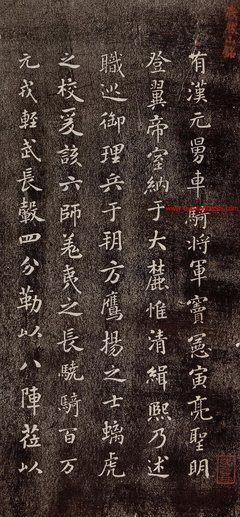 有漢元舅車騎將軍竇憲寅亮聖明
登翼帝室納于大麓惟清緝熙乃述
職巡御理兵于朔方鷹揚之士螭虎
之校爰該六師羌夷之長驍騎百万
元戎輕武長轂四分勒以八陣莅以